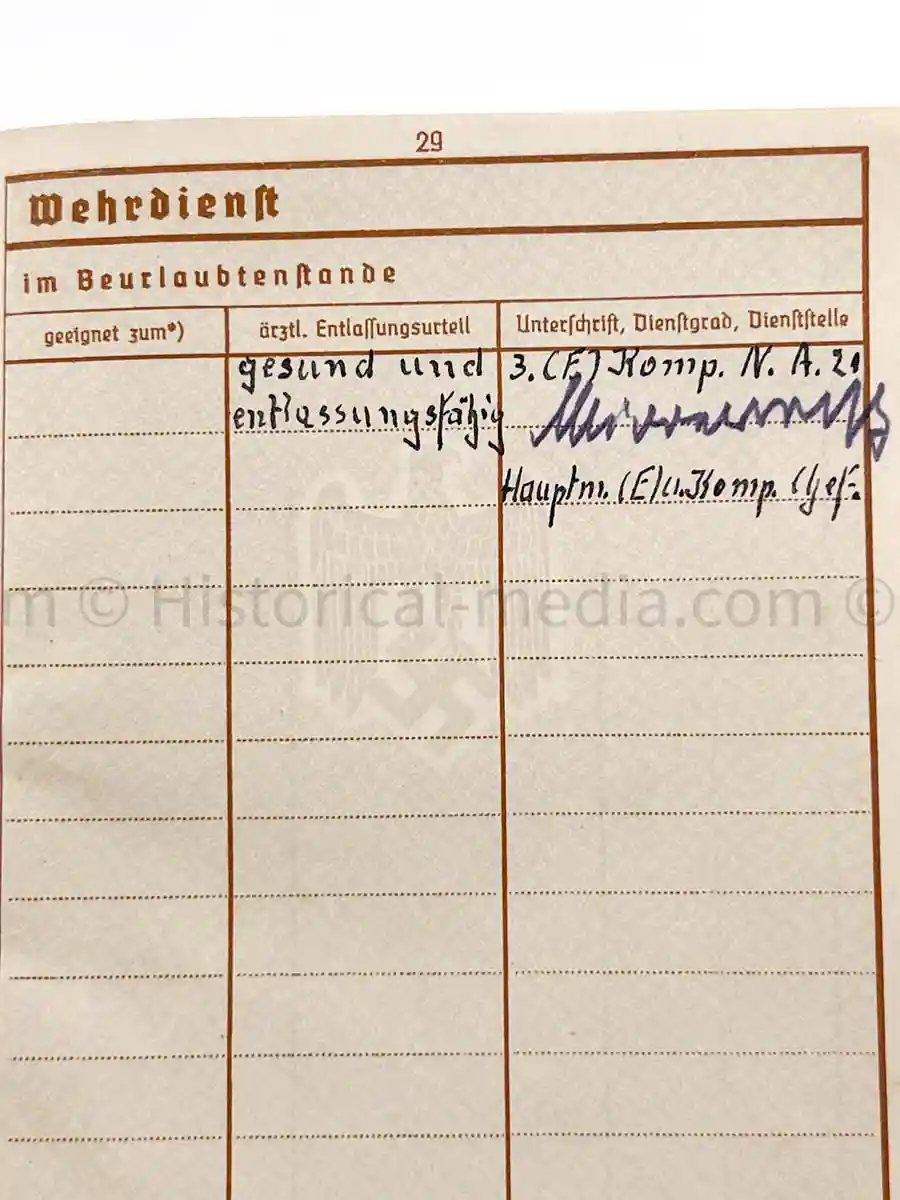 29
Wehrdienst
im Beurlaubtenstande
geeignet zum*)
ärztl. Entlassungsurteil
Unterschrift, Dienstgrad, Dienststelle
gesund und
entlassungsfähig
3. (E) Komp. N. A. 20
Hauptm. (E) u. Komp. Chef.
m © Historical-media.com ©